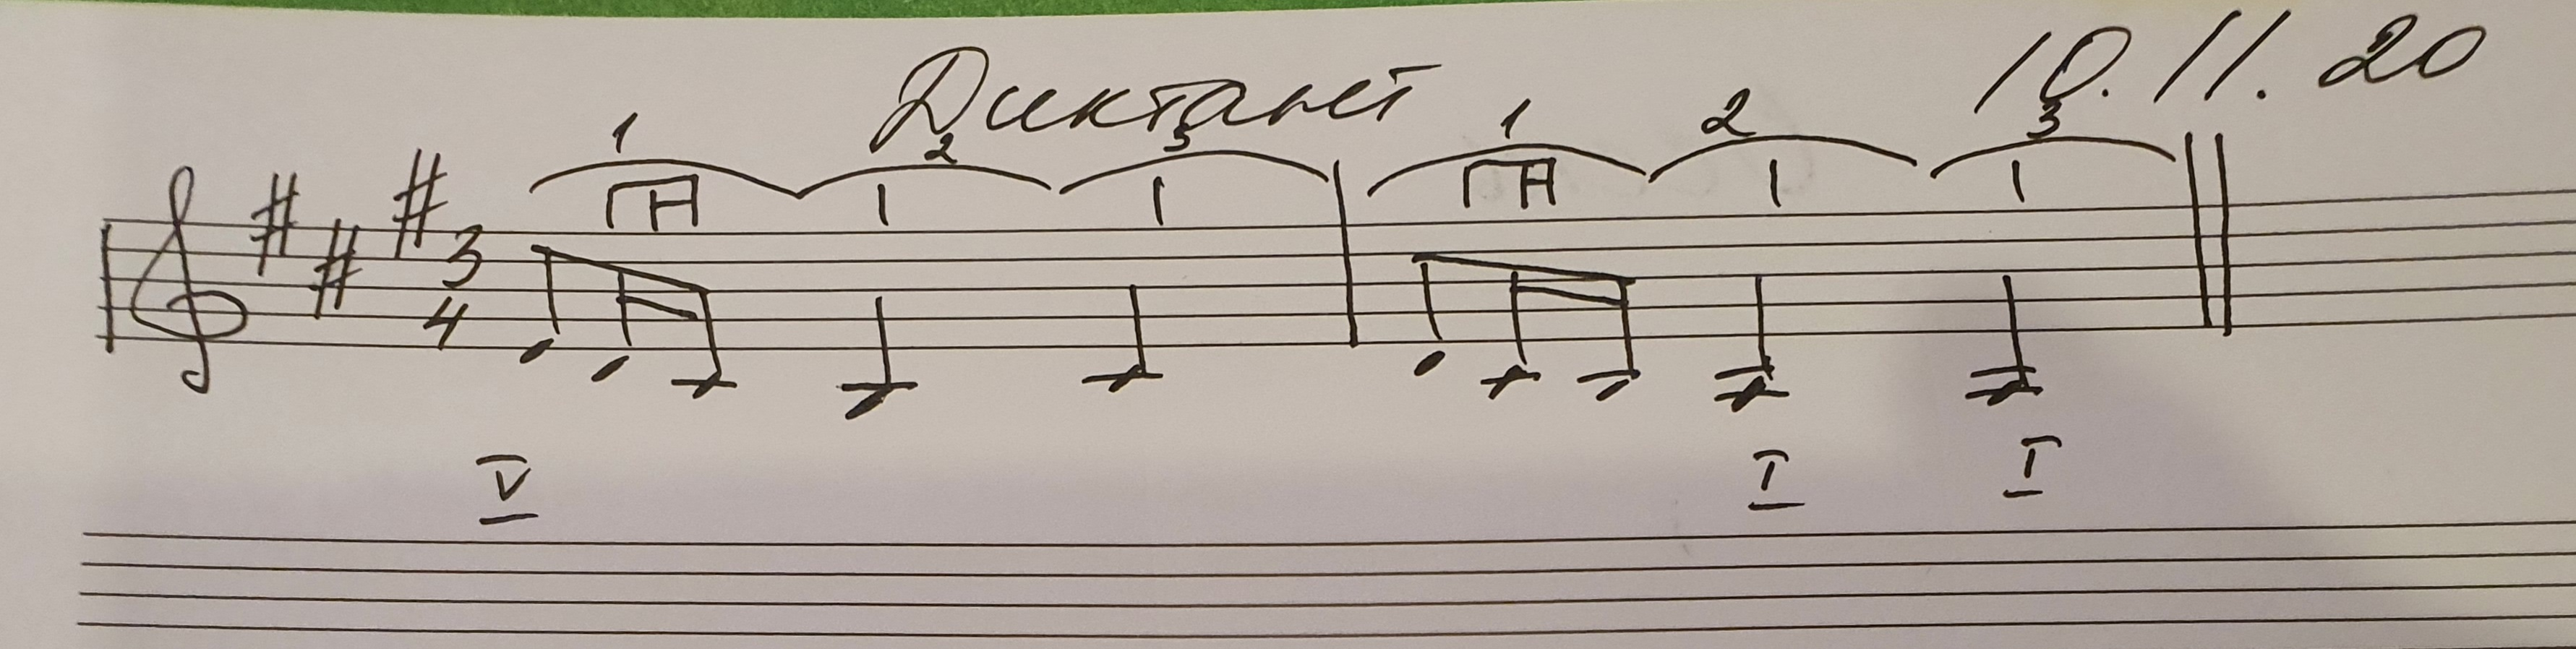 Диктант 10.11.20
1 2 3 1 2 3
3
4
V I I